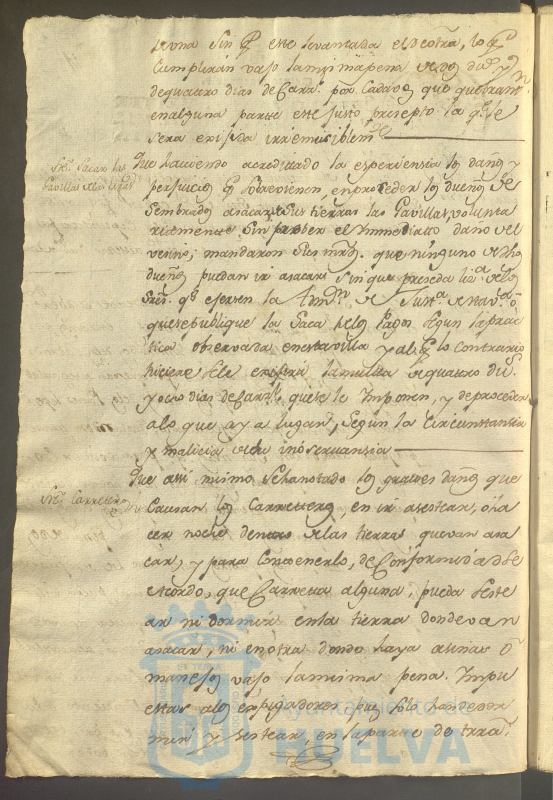 de una sin q.e este levantada el de otra, lo q.e
Cumplirán vajo la misma pena de dos du.s y
de quatro dias de Carz.l por Cada vez que quebranten
en alguna parte este justo presepto la q.e le
sera exijida irremisiblem.te
Sre. Sacar las
Gavillas de las tierras
Que haviendo acreditado la esperiensia los daños y
perjuicios q.e sobrevienen en proceder los dueños de
Sembrados a sacar de sus tierras las Gavillas, volunta
riamente sin el Ynmediatto dano del
vezino; mandaron sus mrds. que ninguno de dhos
dueños puedan ir a sacar sin que preseda liz.a de los
Sres. q.e exersen la Adm.on de Just.a de esta v.a ó
que se publique la Saca de los Pagos segun la prac
tica observada en esta villa y al q.e lo contrario
hiciere se le exijira la multa de quatro du.s
y ocho dias de Carzl. que se le Ymponen, y de proceder
a lo que aya lugar, segun la Circunstansia
y malicia de su inoservansia
Sre. Carreteros
Que assi mismo se ha notado los graves daños que
Causan los Carreteros, en ir a sestear, ó ha
cer noche dentro de las tierras que van a sa
car, y para Contenerlo, de Conformidad se
acordó, que Carreta alguna, pueda seste
ar ni dormir en la tierra donde van
a sacar, ni en otra donde haya asinas ó
manojos vajo la misma pena Ympu
estas a los espigadores pues solo han de dor
mir y sestear, en la parte de trra.
Ayuntamiento de
HUELVA